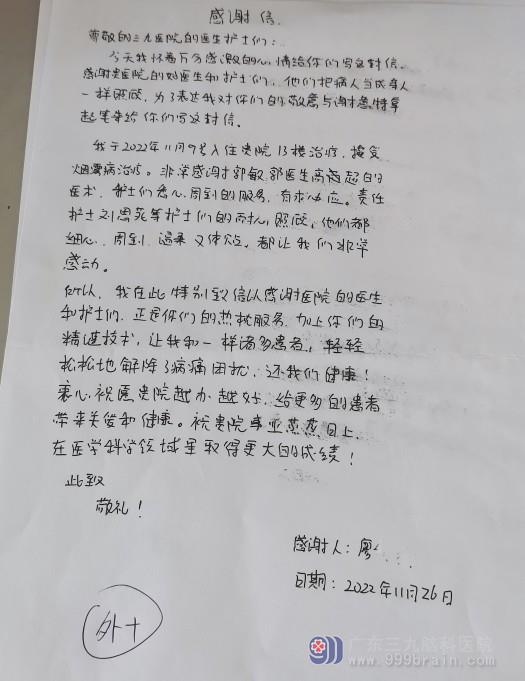 感谢信.
尊敬的三九医院的医生护士们:
今天我怀着万分感激的心情给你们写这封信.
感谢贵医院的好医生和护士们,他们把病人当成亲人
一样照顾,为了表达我对你们的敬意与谢意,特拿
起笔来给你们写这封信。
我于2022年11月9号入住贵院13楼治疗,接受
烟雾病治疗。非常感谢郭敏 郭医生高超的
医术,护士们悉心、周到的服务,有求必应。责任
护士刘思等护士们的照顾,他们都
细心、周到、温柔又体贴,都让我们非常
感动。
所以,我在此特别致信以感谢医院的医生
和护士们,正是你们的热忱服务,加上你们的
精进技术,让我和一样诸多患者,轻轻
松松地解除了病痛困扰,还我们健康!
衷心祝愿贵院越办越好,给更多的患者
带来关爱和健康。祝贵院事业蒸蒸日上,
在医学科学领域里取得更大的成绩!
此致
敬礼!
感谢人:廖
日期:2022年11月26日
外十
广东三九脑科医院
www.999brain.com